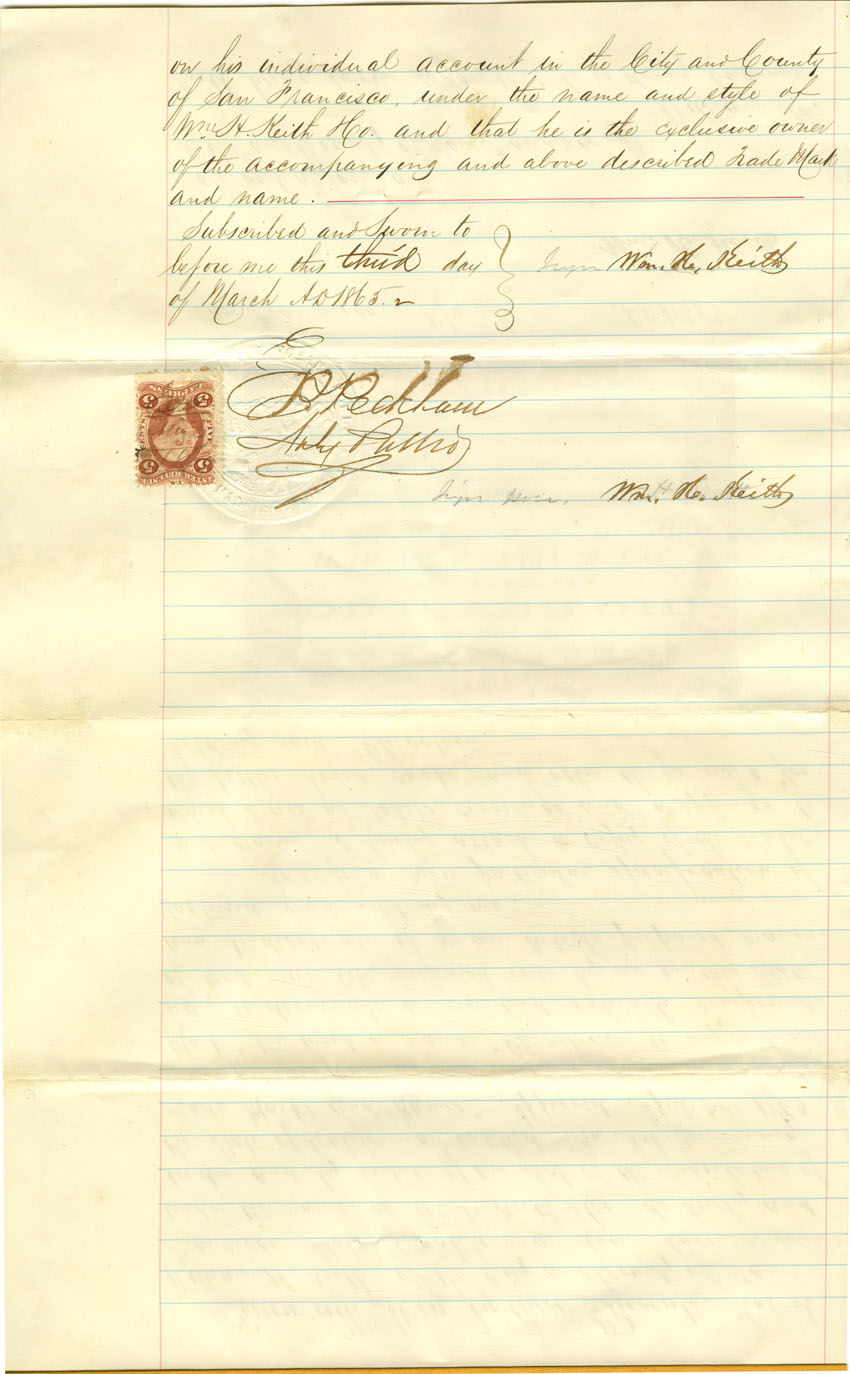 on his individual account in the City and County
of San Francisco, under the name and style of
Wm. H. Keith & Co. and that he is the exclusive owner
of the accompanying and above described Trade Mark
and name.
Subscribed and Sworn to
before me this third day
of March AD 1865.
Wm. H. Keith
E P Peckham
Noty Public
Sign here. Wm. H. Keith
5 5
FIVE
CENTS
5 5